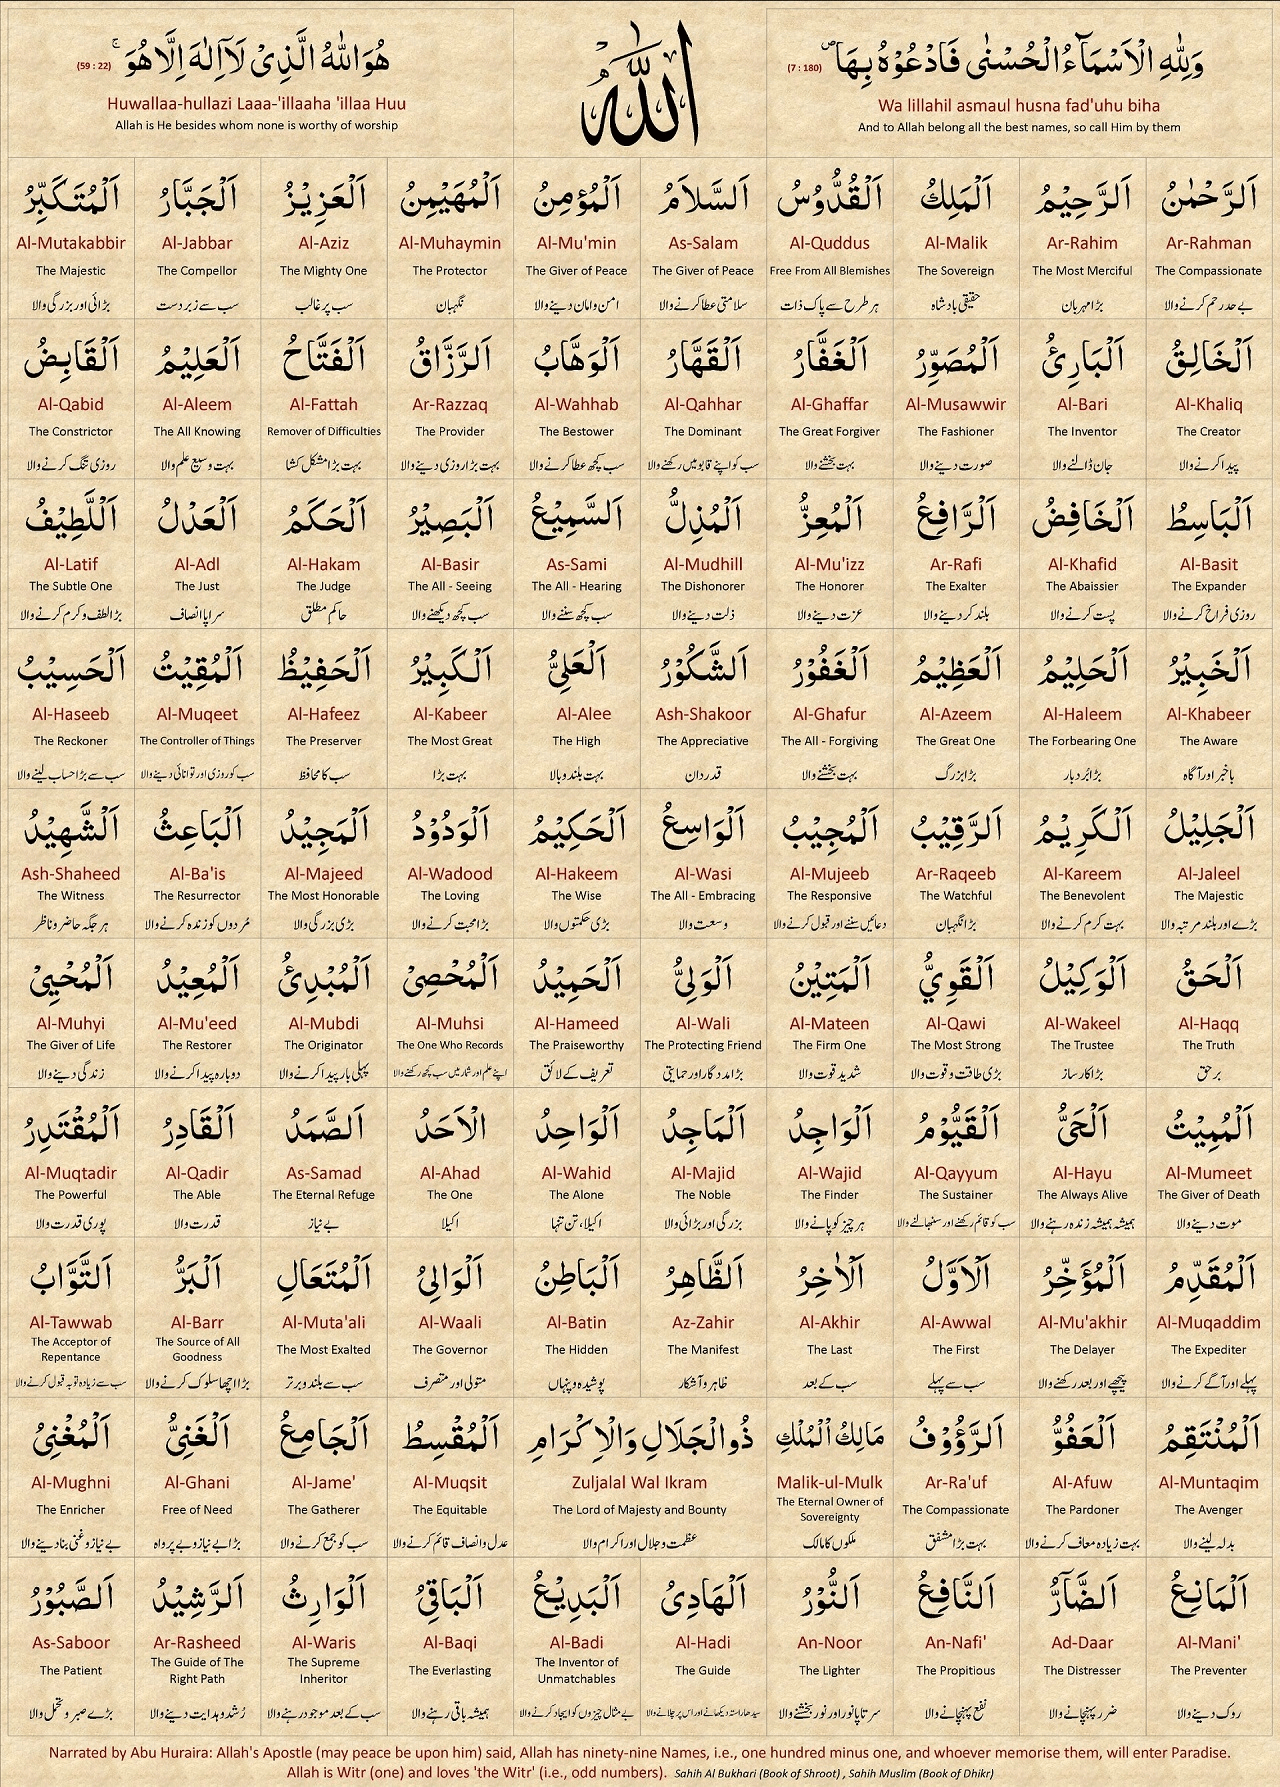 وَلِلّٰهِ الْاَسْمَآءُ الْحُسْنٰى فَادْعُوْهُ بِهَا ۖ (7 : 180)
Wa lillahil asmaul husna fad'uhu biha
And to Allah belong all the best names, so call Him by them
اللّٰهُ
هُوَ اللّٰهُ الَّذِىْ لَآ اِلٰهَ اِلَّا هُوَ ۚ (59 : 22)
Huwallaa-hullazi Laaa-'illaaha 'illaa Huu
Allah is He besides whom none is worthy of worship
اَلرَّحْمٰنُ
Ar-Rahman
The Compassionate
بے حد رحم کرنے والا
اَلرَّحِيْمُ
Ar-Rahim
The Most Merciful
بڑا مہربان
اَلْمَلِكُ
Al-Malik
The Sovereign
حقیقی بادشاہ
اَلْقُدُّوْسُ
Al-Quddus
Free From All Blemishes
ہر طرح سے پاک ذات
اَلسَّلَامُ
As-Salam
The Giver of Peace
سلامتی عطا کرنے والا
اَلْمُؤْمِنُ
Al-Mu'min
The Giver of Peace
امن و امان دینے والا
اَلْمُهَيْمِنُ
Al-Muhaymin
The Protector
نگہبان
اَلْعَزِيْزُ
Al-Aziz
The Mighty One
سب پر غالب
اَلْجَبَّارُ
Al-Jabbar
The Compellor
سب سے زبردست
اَلْمُتَكَبِّرُ
Al-Mutakabbir
The Majestic
بڑائی اور بزرگی والا
اَلْخَالِقُ
Al-Khaliq
The Creator
پیدا کرنے والا
اَلْبَارِئُ
Al-Bari
The Inventor
جان ڈالنے والا
اَلْمُصَوِّرُ
Al-Musawwir
The Fashioner
صورت دینے والا
اَلْغَفَّارُ
Al-Ghaffar
The Great Forgiver
بہت بخشنے والا
اَلْقَهَّارُ
Al-Qahhar
The Dominant
سب کو اپنے قابو میں رکھنے والا
اَلْوَهَّابُ
Al-Wahhab
The Bestower
سب کچھ عطا کرنے والا
اَلرَّزَّاقُ
Ar-Razzaq
The Provider
بہت بڑا روزی دینے والا
اَلْفَتَّاحُ
Al-Fattah
Remover of Difficulties
بہت بڑا مشکل کشا
اَلْعَلِيْمُ
Al-Aleem
The All Knowing
بہت وسیع علم والا
اَلْقَابِضُ
Al-Qabid
The Constrictor
روزی تنگ کرنے والا
اَلْبَاسِطُ
Al-Basit
The Expander
روزی فراخ کرنے والا
اَلْخَافِضُ
Al-Khafid
The Abaissier
پست کرنے والا
اَلرَّافِعُ
Ar-Rafi
The Exalter
بلند کر دینے والا
اَلْمُعِزُّ
Al-Mu'izz
The Honorer
عزت دینے والا
اَلْمُذِلُّ
Al-Mudhill
The Dishonorer
ذلت دینے والا
اَلسَّمِيْعُ
As-Sami
The All - Hearing
سب کچھ سننے والا
اَلْبَصِيْرُ
Al-Basir
The All - Seeing
سب کچھ دیکھنے والا
اَلْحَكَمُ
Al-Hakam
The Judge
حاکم مطلق
اَلْعَدْلُ
Al-Adl
The Just
سراپا انصاف
اَللَّطِيْفُ
Al-Latif
The Subtle One
بڑا لطف و کرم کرنے والا
اَلْخَبِيْرُ
Al-Khabeer
The Aware
باخبر اور آگاہ
اَلْحَلِيْمُ
Al-Haleem
The Forbearing One
بڑا بُردبار
اَلْعَظِيْمُ
Al-Azeem
The Great One
بڑا بزرگ
اَلْغَفُوْرُ
Al-Ghafur
The All - Forgiving
بہت بخشنے والا
اَلشَّكُوْرُ
Ash-Shakoor
The Appreciative
قدردان
اَلْعَلِىُّ
Al-Alee
The High
بہت بلند و بالا
اَلْكَبِيْرُ
Al-Kabeer
The Most Great
بہت بڑا
اَلْحَفِيْظُ
Al-Hafeez
The Preserver
سب کا محافظ
اَلْمُقِيْتُ
Al-Muqeet
The Controller of Things
سب کو روزی اور توانائی دینے والا
اَلْحَسِيْبُ
Al-Haseeb
The Reckoner
سب سے بڑا حساب لینے والا
اَلْجَلِيْلُ
Al-Jaleel
The Majestic
بڑے اور بلند مرتبہ والا
اَلْكَرِيْمُ
Al-Kareem
The Benevolent
بہت کرم کرنے والا
اَلرَّقِيْبُ
Ar-Raqeeb
The Watchful
بڑا نگہبان
اَلْمُجِيْبُ
Al-Mujeeb
The Responsive
دعائیں سننے اور قبول کرنے والا
اَلْوَاسِعُ
Al-Wasi
The All - Embracing
وسعت والا
اَلْحَكِيْمُ
Al-Hakeem
The Wise
بڑی حکمتوں والا
اَلْوَدُوْدُ
Al-Wadood
The Loving
بڑا محبت کرنے والا
اَلْمَجِيْدُ
Al-Majeed
The Most Honorable
بڑی بزرگی والا
اَلْبَاعِثُ
Al-Ba'is
The Resurrector
مُردوں کو زندہ کرنے والا
اَلشَّهِيْدُ
Ash-Shaheed
The Witness
ہر جگہ حاضر و ناظر
اَلْحَقُّ
Al-Haqq
The Truth
برحق
اَلْوَكِيْلُ
Al-Wakeel
The Trustee
بڑا کارساز
اَلْقَوِيُّ
Al-Qawi
The Most Strong
بڑی طاقت و قوت والا
اَلْمَتِيْنُ
Al-Mateen
The Firm One
شدید قوت والا
اَلْوَلِىُّ
Al-Wali
The Protecting Friend
بڑا مددگار اور حمایتی
اَلْحَمِيْدُ
Al-Hameed
The Praiseworthy
تعریف کے لائق
اَلْمُحْصِىْ
Al-Muhsi
The One Who Records
اپنے علم اور شمار میں سب کچھ رکھنے والا
اَلْمُبْدِئُ
Al-Mubdi
The Originator
پہلی بار پیدا کرنے والا
اَلْمُعِيْدُ
Al-Mu'eed
The Restorer
دوبارہ پیدا کرنے والا
اَلْمُحْيِىْ
Al-Muhyi
The Giver of Life
زندگی دینے والا
اَلْمُمِيْتُ
Al-Mumeet
The Giver of Death
موت دینے والا
اَلْحَىُّ
Al-Hayu
The Always Alive
ہمیشہ ہمیشہ زندہ رہنے والا
اَلْقَيُّوْمُ
Al-Qayyum
The Sustainer
سب کو قائم رکھنے اور سنبھالنے والا
اَلْوَاجِدُ
Al-Wajid
The Finder
ہر چیز کو پانے والا
اَلْمَاجِدُ
Al-Majid
The Noble
بزرگی اور بڑائی والا
اَلْوَاحِدُ
Al-Wahid
The Alone
اکیلا، تن تنہا
الْاَحَدُ
Al-Ahad
The One
اکیلا
اَلصَّمَدُ
As-Samad
The Eternal Refuge
بے نیاز
اَلْقَادِرُ
Al-Qadir
The Able
قدرت والا
اَلْمُقْتَدِرُ
Al-Muqtadir
The Powerful
پوری قدرت والا
اَلْمُقَدِّمُ
Al-Muqaddim
The Expediter
پہلے اور آگے کرنے والا
اَلْمُؤَخِّرُ
Al-Mu'akhir
The Delayer
پیچھے اور بعد رکھنے والا
اَلْاَوَّلُ
Al-Awwal
The First
سب سے پہلے
اَلْاٰخِرُ
Al-Akhir
The Last
سب کے بعد
اَلظَّاهِرُ
Az-Zahir
The Manifest
ظاہر و آشکار
اَلْبَاطِنُ
Al-Batin
The Hidden
پوشیدہ و پنہاں
اَلْوَالِىُ
Al-Waali
The Governor
متولی اور متصرف
اَلْمُتَعَالِ
Al-Muta'ali
The Most Exalted
سب سے بلند و برتر
اَلْبَرُّ
Al-Barr
The Source of All
Goodness
بڑا اچھا سلوک کرنے والا
اَلتَّوَّابُ
Al-Tawwab
The Acceptor of
Repentance
سب سے زیادہ توبہ قبول کرنے والا
اَلْمُنْتَقِمُ
Al-Muntaqim
The Avenger
بدلہ لینے والا
اَلْعَفُوُّ
Al-Afuw
The Pardoner
بہت زیادہ معاف کرنے والا
اَلرَّؤُوْفُ
Ar-Ra'uf
The Compassionate
بہت بڑا مشفق
مَالِكُ الْمُلْكِ
Malik-ul-Mulk
The Eternal Owner of
Sovereignty
ملکوں کا مالک
ذُوالْجَلَالِ وَالْاِكْرَامِ
Zuljalal Wal Ikram
The Lord of Majesty and Bounty
عظمت و جلال اور اکرام والا
اَلْمُقْسِطُ
Al-Muqsit
The Equitable
عدل و انصاف قائم کرنے والا
اَلْجَامِعُ
Al-Jame'
The Gatherer
سب کو جمع کرنے والا
اَلْغَنِىُّ
Al-Ghani
Free of Need
بڑا بے نیاز و بے پرواہ
اَلْمُغْنِىُ
Al-Mughni
The Enricher
بے نیاز و غنی بنا دینے والا
اَلْمَانِعُ
Al-Mani'
The Preventer
روک دینے والا
اَلضَّآرُّ
Ad-Daar
The Distresser
ضرر پہنچانے والا
اَلنَّافِعُ
An-Nafi'
The Propitious
نفع پہنچانے والا
اَلنُّوْرُ
An-Noor
The Lighter
سرتاپا نور اور نور بخشنے والا
اَلْهَادِىُ
Al-Hadi
The Guide
سیدھا راستہ دکھانے اور اس پر چلانے والا
اَلْبَدِيْعُ
Al-Badi
The Inventor of
Unmatchables
بے مثال چیزوں کو ایجاد کرنے والا
اَلْبَاقِىُ
Al-Baqi
The Everlasting
ہمیشہ باقی رہنے والا
اَلْوَارِثُ
Al-Waris
The Supreme
Inheritor
سب کے بعد موجود رہنے والا
اَلرَّشِيْدُ
Ar-Rasheed
The Guide of The
Right Path
رُشد و ہدایت دینے والا
اَلصَّبُوْرُ
As-Saboor
The Patient
بڑے صبر و تحمل والا
Narrated by Abu Huraira: Allah's Apostle (may peace be upon him) said, Allah has ninety-nine Names, i.e., one hundred minus one, and whoever memorise them, will enter Paradise.
Allah is Witr (one) and loves 'the Witr' (i.e., odd numbers). Sahih Al Bukhari (Book of Shroot) , Sahih Muslim (Book of Dhikr)